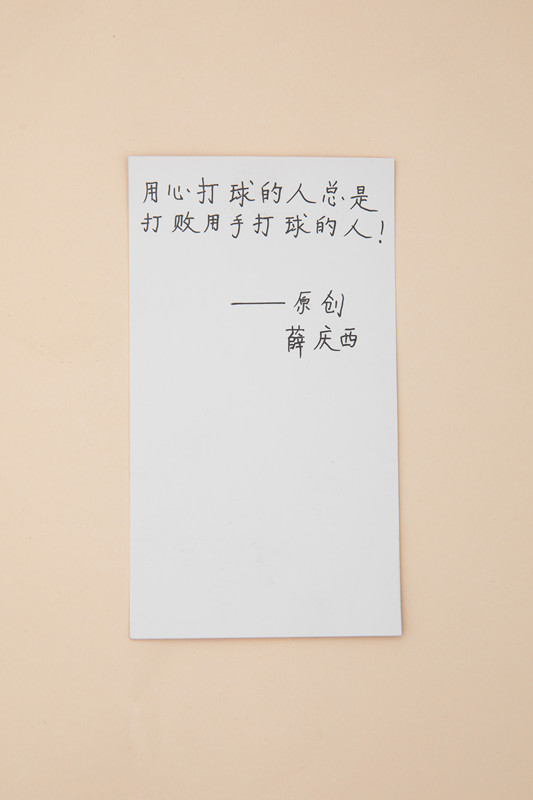 用心打球的人总是
打败用手打球的人！
——原创
薛庆西